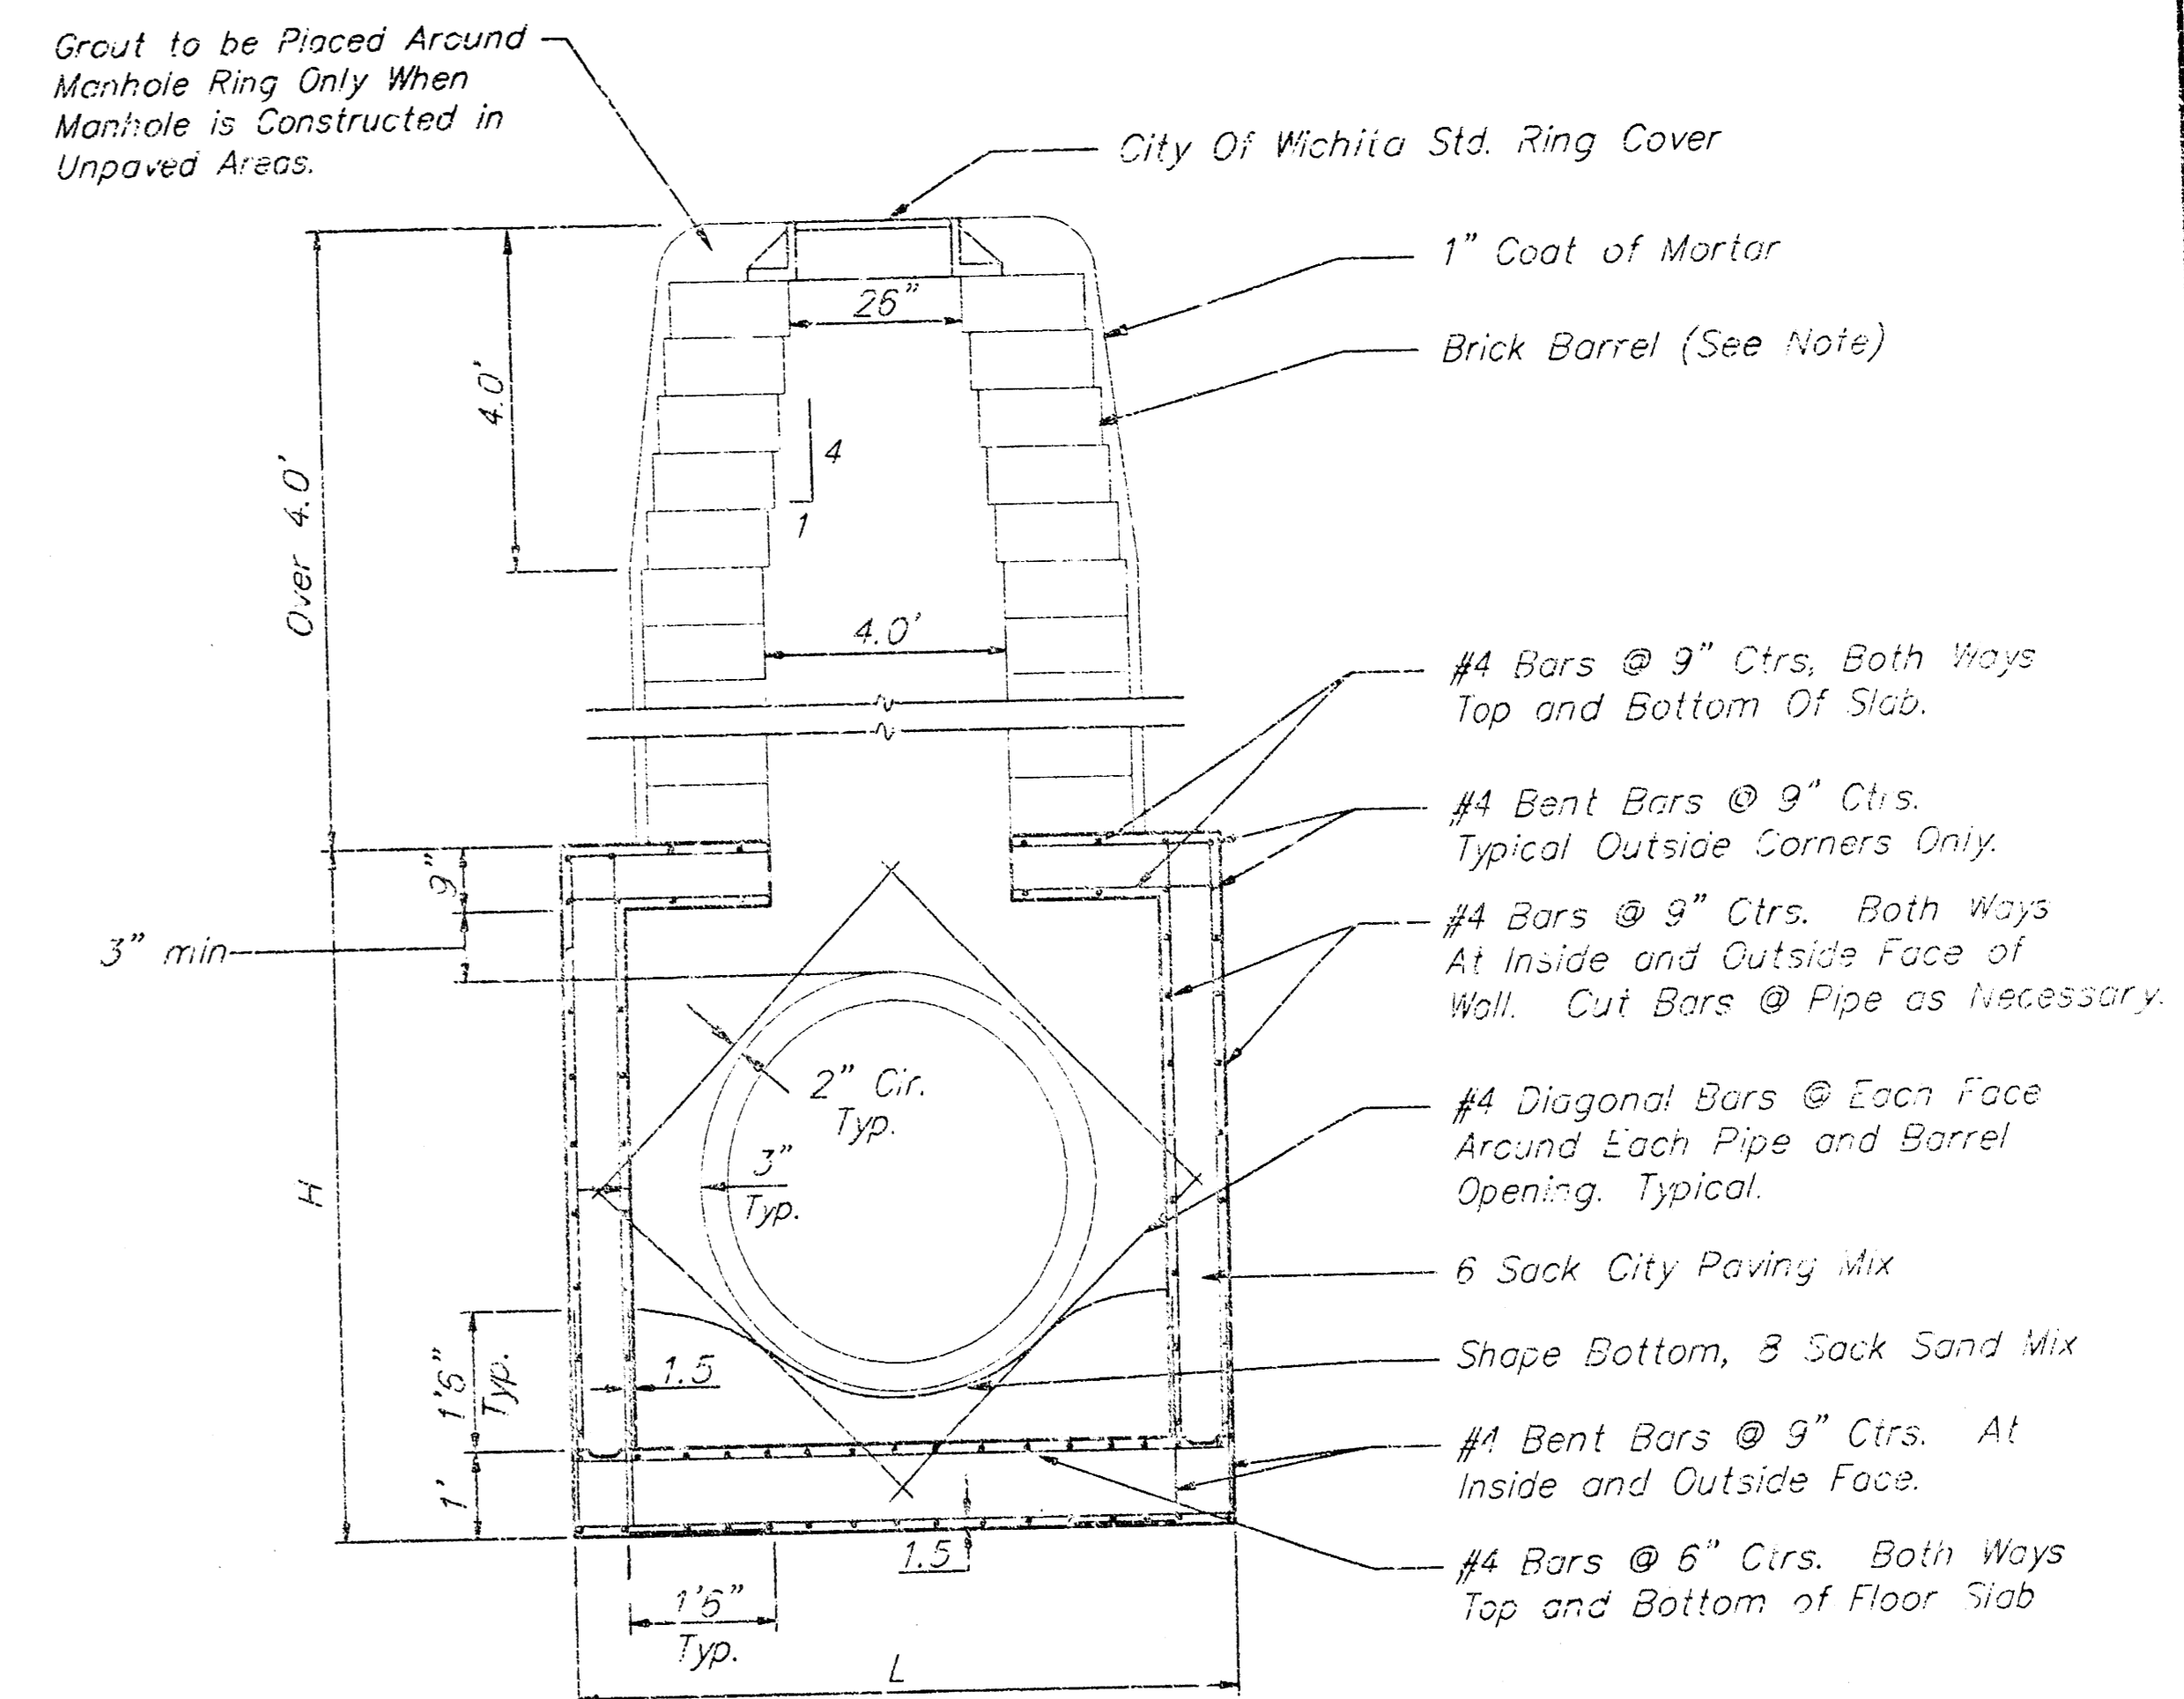 Grout to be Placed Around
Manhole Ring Only When
Manhole is Constructed in
Unpaved Areas.
City Of Wichita Std. Ring Cover
1" Coat of Mortar
26"
Brick Barrel (See Note)
4.0'
4
1
Over 4.0'
4.0'
#4 Bars @ 9" Ctrs, Both Ways
Top and Bottom Of Slab.
#4 Bent Bars @ 9" Ctrs.
Typical Outside Corners Only.
9"
3" min
#4 Bars @ 9" Ctrs. Both Ways
At Inside and Outside Face of
Wall. Cut Bars @ Pipe as Necessary.
2" Clr.
Typ.
#4 Diagonal Bars @ Each Face
Around Each Pipe and Barrel
Opening. Typical.
3"
Typ.
H
6 Sack City Paving Mix
Shape Bottom, 8 Sack Sand Mix
1'6"
Typ.
1.5
#4 Bent Bars @ 9" Ctrs. At
Inside and Outside Face.
1'
1.5
#4 Bars @ 6" Ctrs. Both Ways
Top and Bottom of Floor Slab
1'6"
Typ.
L